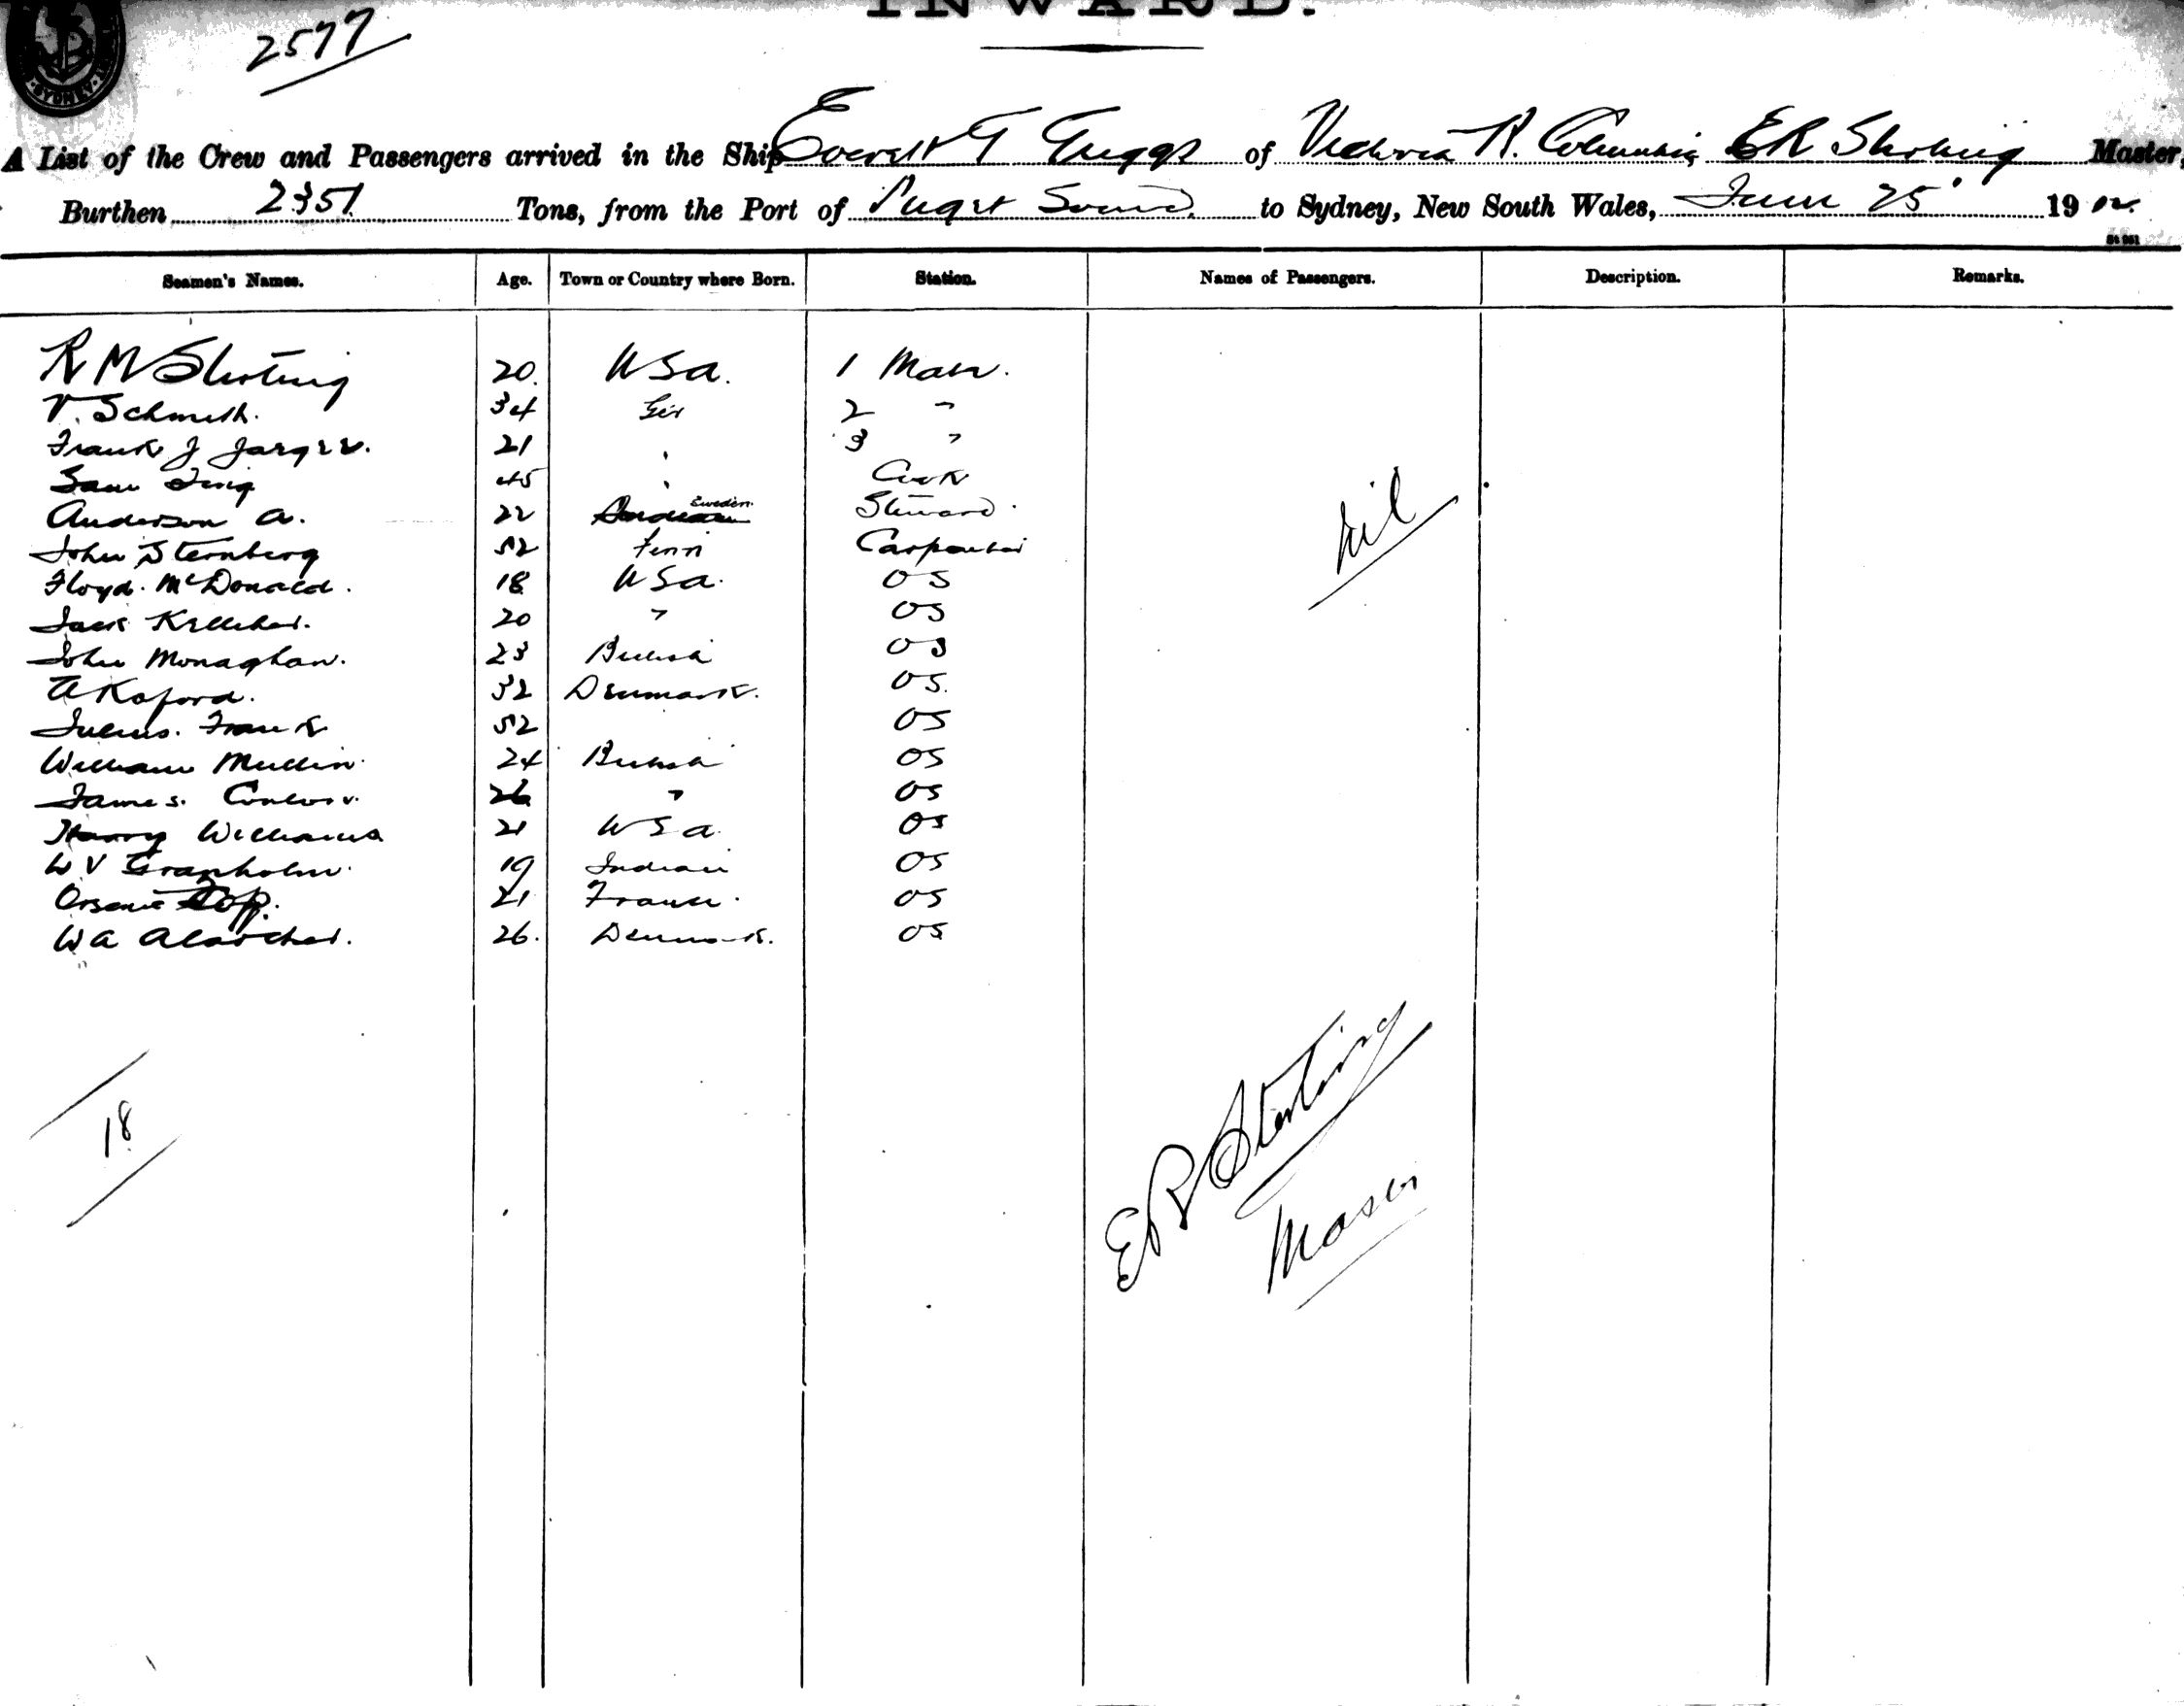 INWARD.
2577
SYDNEY
A List of the Crew and Passengers arrived in the Ship Everett G Griggs of Victoria B. Columbia, ER Sterling Master,
Burthen 2351 Tons, from the Port of Puget Sound to Sydney, New South Wales, June 25 1912.
St 951
Seamen's Names. Age. Town or Country where Born. Station. Names of Passengers. Description. Remarks.
R M Sterling 20. USa. 1 Mate.
V. Schmeth. 34 Ger 2 "
Frank J Jarger. 21 " 3 "
Sam 45 " Cook
Anderson A. 22 Sweden. Steward.
John Sternberg 52 Finn Carpenter
Floyd. McDonald. 18 USa. OS
Jack Kelleher. 20 " OS
John Monaghan. 23 British OS
A Koford. 32 Denmark. OS.
Julius. Frank 52 OS
William Mullin. 24 British OS
James. Conlon. 26 " OS
Harry Williams 21 USa OS
W V Granholm. 19 Indian OS
Top. 21 France. OS
W A 26. Denmark. OS
Nil
18
ER Sterling
Master